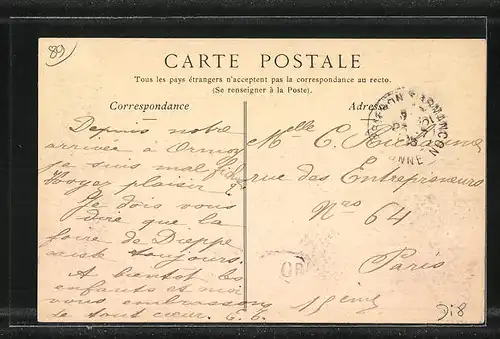 89
CARTE POSTALE
Tous les pays étrangers n'acceptent pas la correspondance au recto.
(Se renseigner à la Poste).
Correspondance
Adresse
BRIENON S ARMANCON
YONNE
Depuis notre
arrivée à Ormoy
je suis mal
Voyez plaisir ?
Je dois vous
dire que la
foire de Dieppe
existe toujours.
A bientôt les
enfants et moi
vous embrassons
de tout cœur. C. C.
Melle C.
rue des Entrepreneurs
Nro 64
Paris
15ème
OR